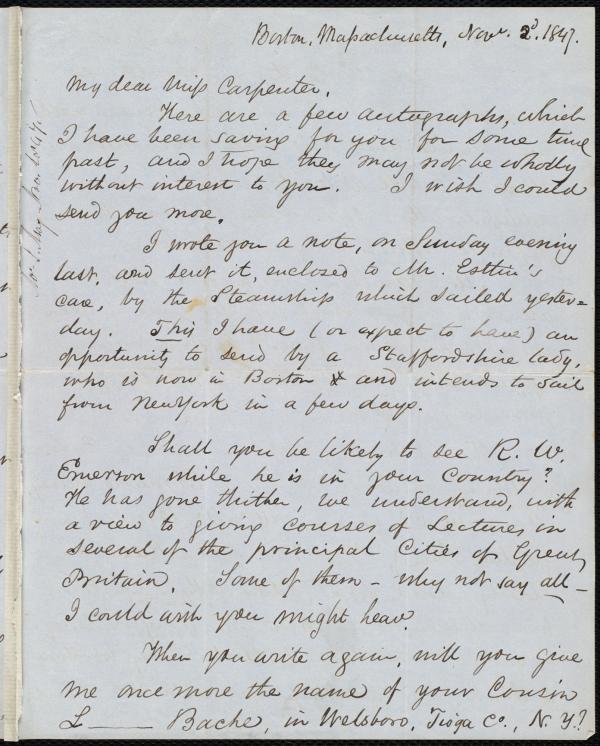 Boston, Massachusetts, Novr. 2d. 1847.
My dear Miss Carpenter,
Here are a few autographs, which
I have been saving for you for some time
past, and I hope they may not be wholly
without interest to you. I wish I could
send you more.
I wrote you a note, on Sunday evening
last, and sent it, enclosed to Mr. Estlin's
care, by the Steamship which sailed yester=
day. This I have (or expect to have) an
opportunity to send by a Staffordshire lady,
who is now in Boston and intends to sail
from New York in a few days.
Shall you be likely to see R. W.
Emerson while he is in your Country?
He has gone thither, we understand, with
a view to giving Courses of Lectures in
several of the principal Cities of Great
Britain. Some of them – why not say all –
I could wish you might hear.
When you write again, will you give
me once more the name of your Cousin
L—— Bache, in Welsboro, Tioga Co., N. Y.?